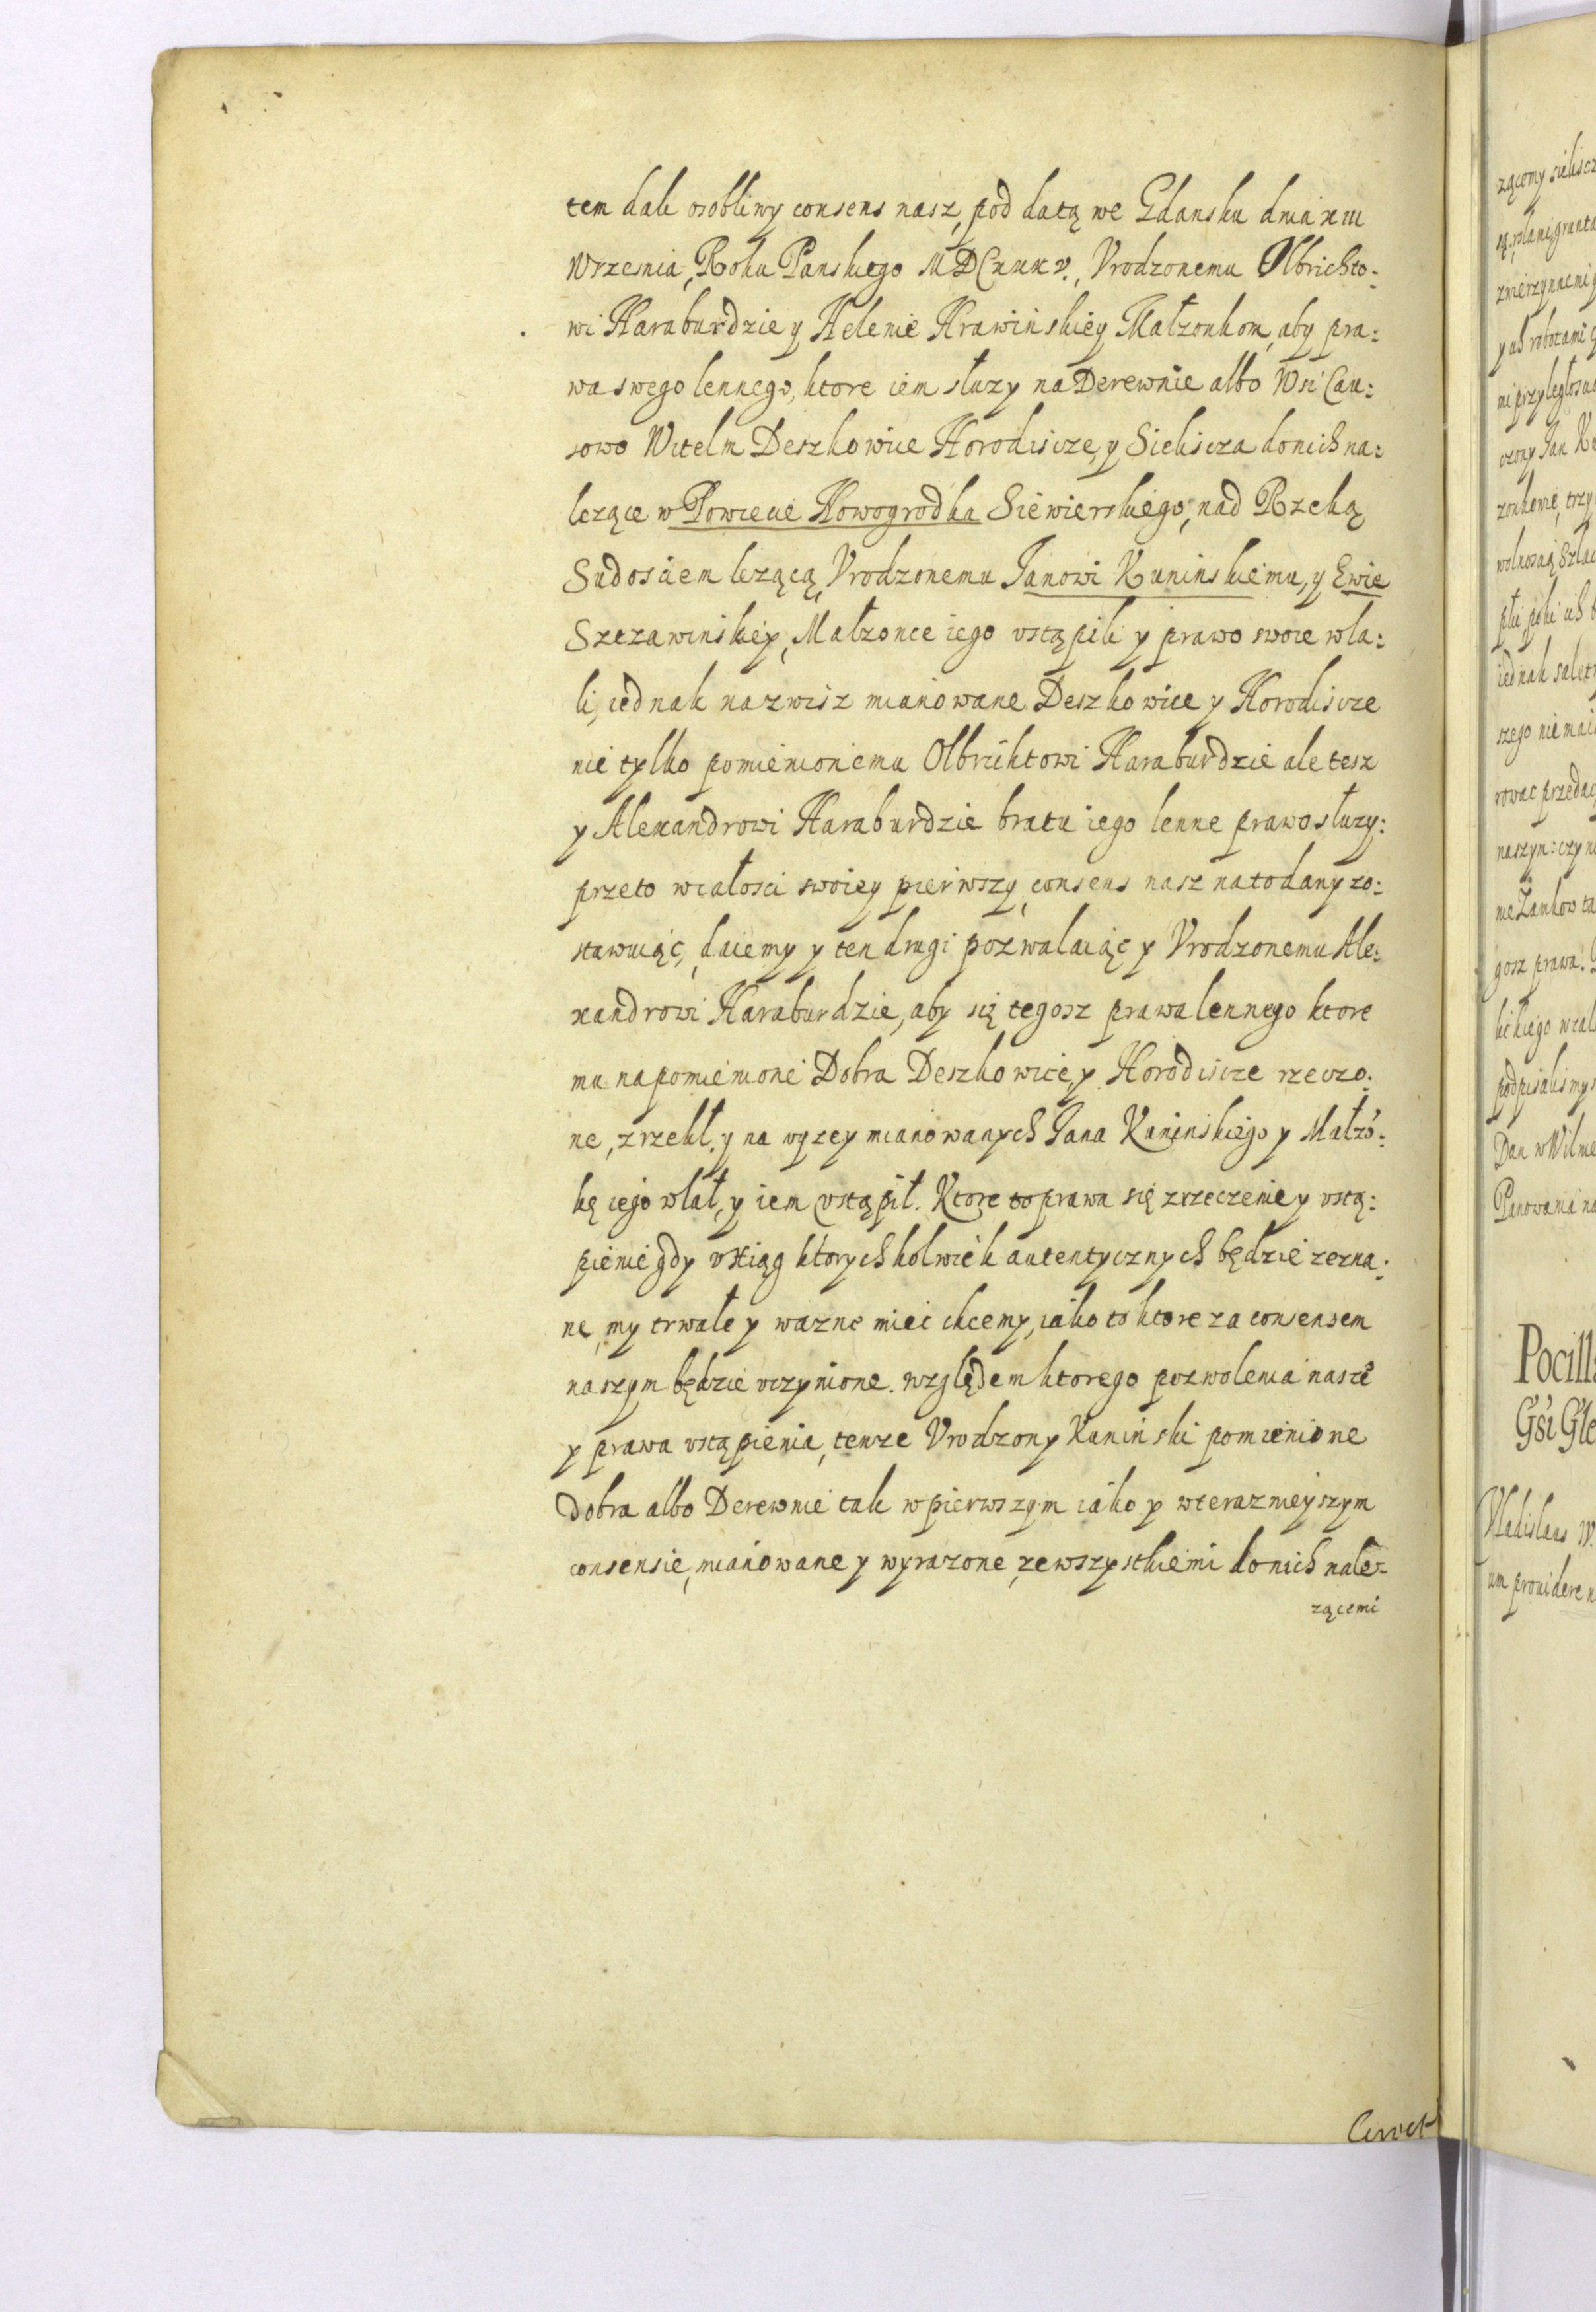 tem dali osobliwy consens nasz, pod datą we Gdansku dnia xiii
Wrzesnia, Roku Panskiego MDCxxxv., Vrodzonemu Olbrichto-
wi Haraburdzie y Helenie Krawinskiey Małzonkom, aby pra:
wa swego lennego, ktore iem słuzy na Derewnie albo Wsi Cau:
sowo Witelm Deszkowice Horodiscze, y Sieliscza do nich na:
lezące w Powiecie Nowogrodka Siewierskiego, nad Rzeką
Sudosciem lezącą, Vrodzonemu Janowi Kuninskiemu, y Ewie
Szczawinskiey, Małzonce iego vstąpili y prawo swoie wla:
li, iednak na zwisz mianowane Deszkowice y Horodiscze
nie tylko pomienionemu Olbrichtowi Haraburdzie ale tesz
y Alexandrowi Haraburdzie bratu iego lenne prawo słuzy:
przeto wcałosci swoiey pierwszy, consens nasz na to dany zo:
stawuiąc, daiemy y ten drugi pozwalaiąc y Vrodzonemu Ale:
xandrowi Haraburdzie, aby się tegosz prawa lennego ktore
mu na pomienione Dobra Deszkowice, y Horodiscze rzeczo:
ne, zrzekł, y na wyzey mianowanych Jana Kuninskiego y Małzó:
kę iego wlał, y iem vstąpił. Ktore to prawa się zrzeczenie y vstą:
pienie gdy v Xiąg ktorychkolwiek autentycznych będzie zezna:
ne, my trwałe y wazne miec chcemy, iako to ktore za consensem
naszym będzie vczynione. Względem ktorego pozwolenia nasze
y prawa vstąpienia, tenze Vrodzony Kuninski pomienione
Dobra albo Derewnie tak w pierwszym iako y w teraznieyszym
consensie, mianowane y wyrazone, ze wszystkiemi do nich nale-
zącemi